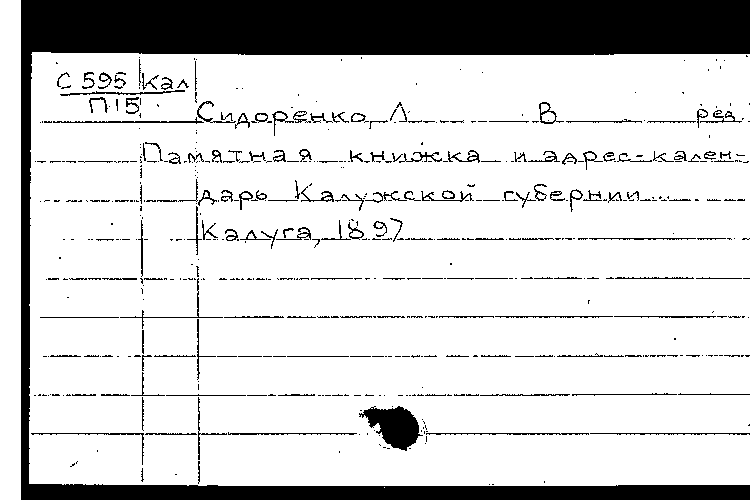 С 595 Кал
П15
Сидоренко, Л В ред.
Памятная книжка и адрес-кален-
дарь Калужской губернии...
Калуга, 1897